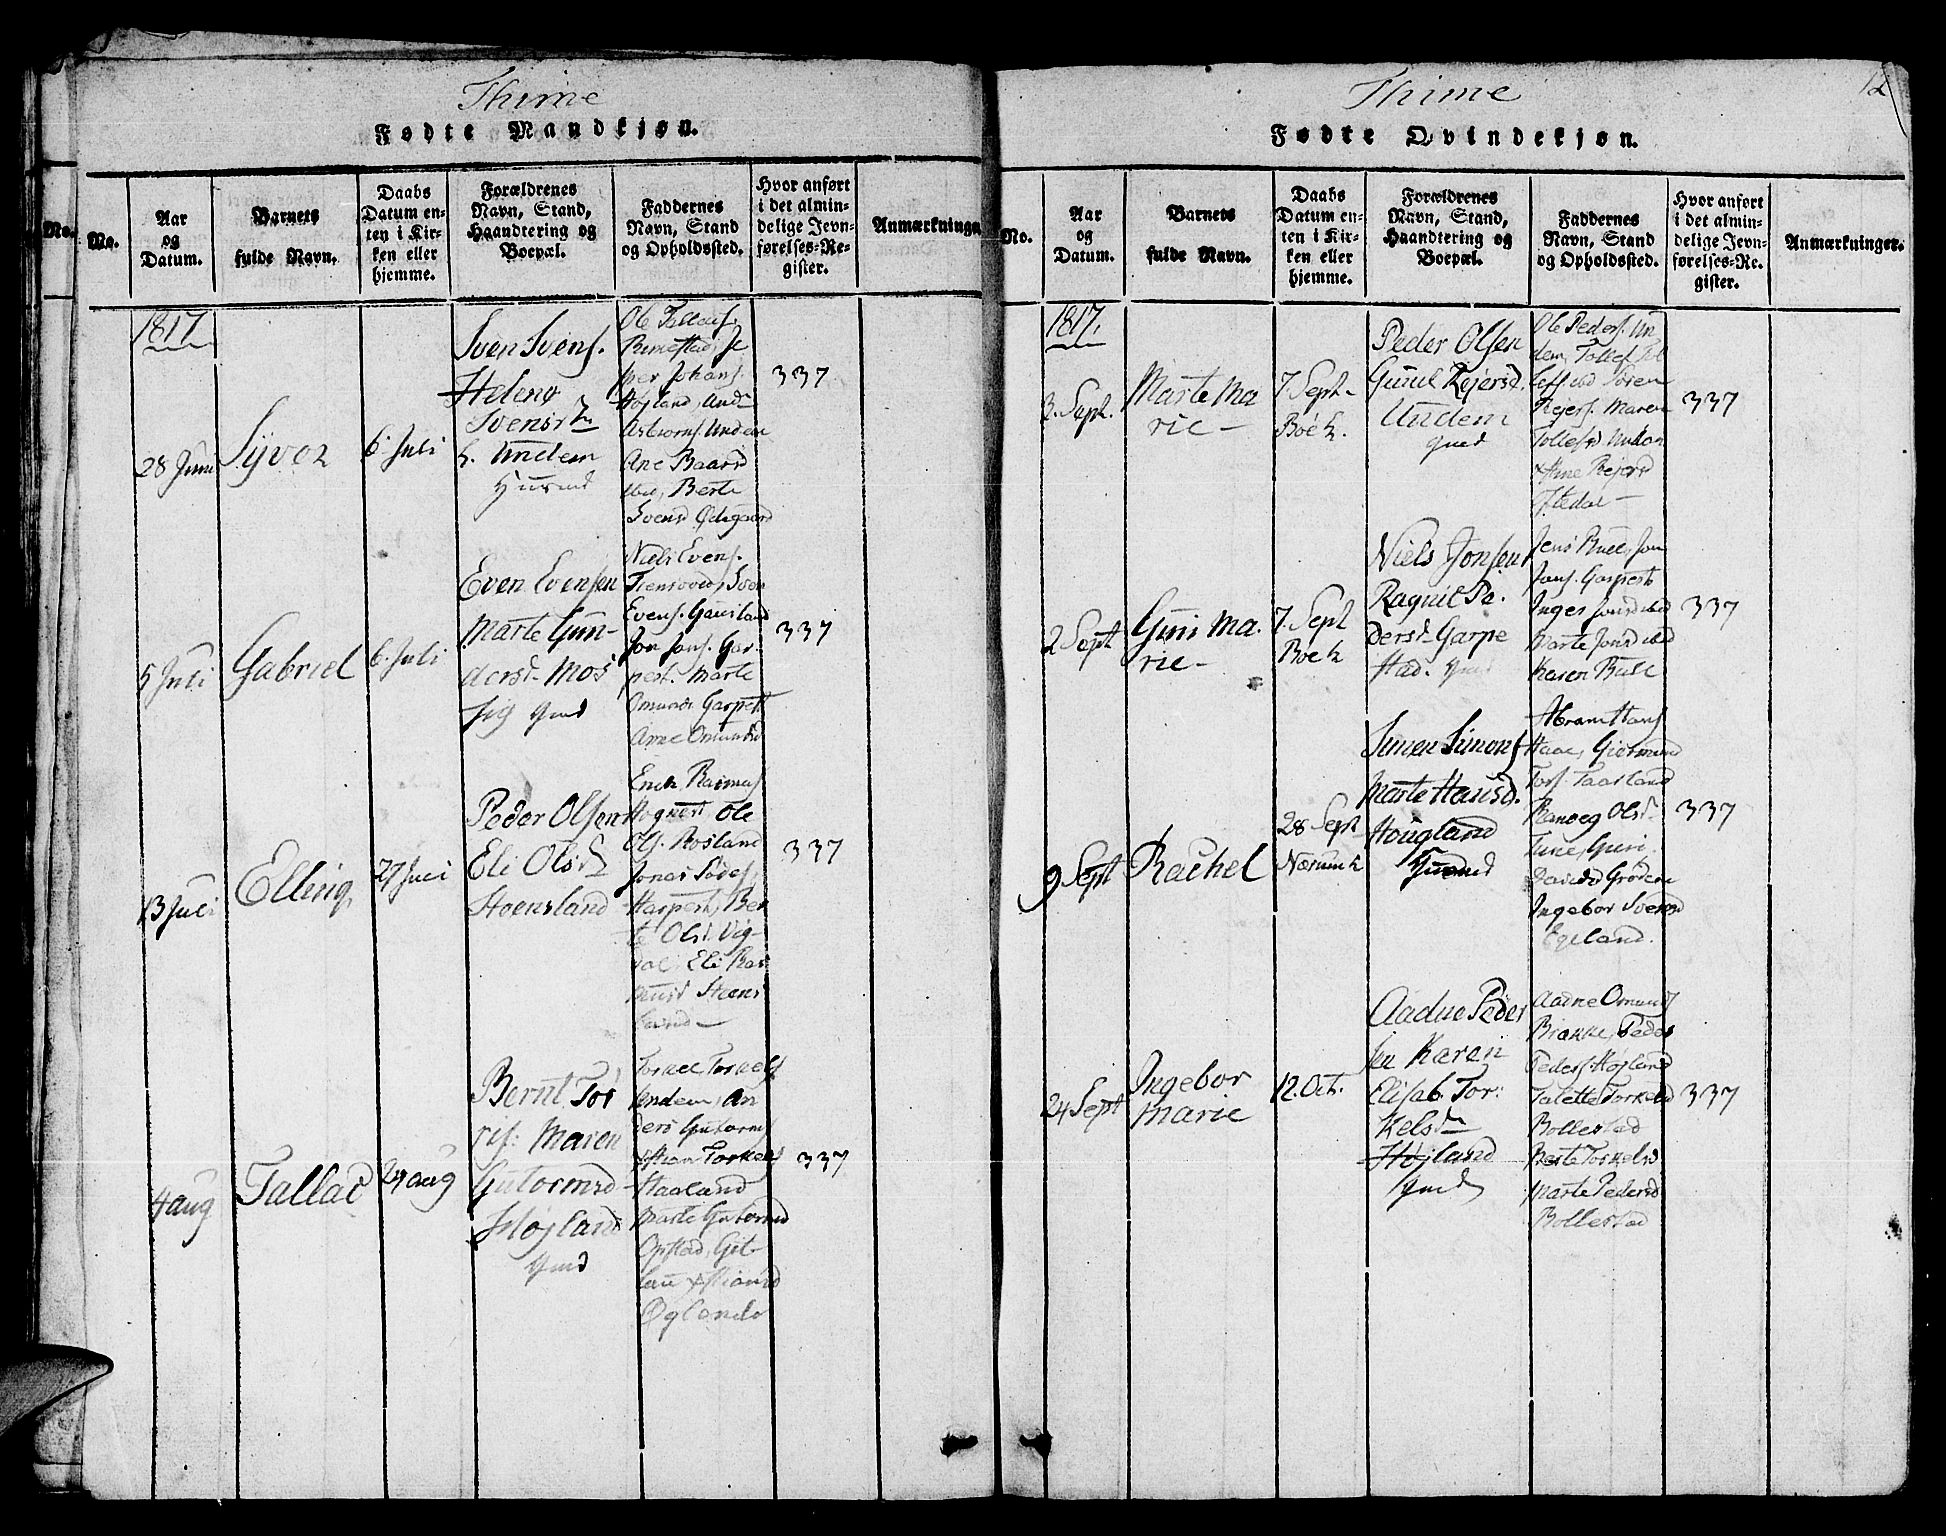 Thime
Fødte Mandkjøn.
No.
No.
Aar
og
Datum.
Barnets
fulde Navn.
Daabs
Datum en-
ten i Kir-
ken eller
hjemme.
Forældrenes
Navn, Stand,
Haandtering og
Boepæl.
Faddernes
Navn, Stand
og Opholdssted.
Hvor anført
i det almin-
delige Jevn-
førelses-Re-
gister.
Anmærkninger
1817.
28 Juni
Syver
6 Juli
Sven Svens.
Helene
Svensd
h. Undem
Ole Tallaks.
Johans.
Højland, And
Asbiorns. Undem
Ane Baard
ibid, Berte
Svensd Ødegaard
337
5 Juli
Gabriel
6. Juli
Even Evensen
Marte Gun-
dersd. Mos
sig Gmd
Niels Evens.
Sven
Evens. Gausland
Jon Jons. Gar-
pest. Marte
Omunds Garpest
Anne Omundsd
337
13 Juli
Elling
27 Juli
Peder Olsen
Eli Olsd
Hoensland
Erich Rasmus
Hognest Ole
Ols. Rosland
Jonas
Harpest, Ber
te Olsd. Vig-
dal, Eli Ras
musd Hoens
land
337
4 aug
Tallac
24 aug
Bernt Tor
res: Maren
Gutormsd
Højland
Gmd
Torkel
Undem, An
ders Gutorms
Torkels
Haaland
Marte Gutormsd
Opstad, Git-
lau Xstiansd
Øglend
337
Thime
12
Fødte Qvindekjøn.
No.
Aar
og
Datum.
Barnets
fulde Navn.
Daabs
Datum en-
ten i Kir-
ken eller
hjemme.
Forældrenes
Navn, Stand,
Haandtering og
Boepæl.
Faddernes
Navn, Stand
og Opholdssted.
Hvor anført
i det almin-
delige Jevn-
førelses-Re-
gister.
Anmærkninger.
1817.
3. Sept.
Marte Ma
rie
7 Sept.
Boe k.
Peder Olsen
Gunil Rejersd.
Undem
gmd
Ole Peders. Un
dem, Tollef Tol
lefs ibd Søren
Rejers. Maren
Tollefsd Undem
Ane Rejersd
Oftedal
337
2 Sept
Guri Ma.
rie
7. Sept
Boe k
Niels Jonsen
Ragnil Pe.
dersd. Garpe
stad. Gmd
Jens Bue, Jon
Jons. Garpest.
Inger Jonsd ibd
Marte Jonsd ibd
Karen Bue
337
9 Sept
Rachel
28 Sept
Nærum k
Simen Simons
Marte Hansd.
Hougland
Huusmd
Abram Hans
Haae, Giermund
Tors. Taarland
Ranveg Olsd
Tune, Guri
Davidsd Grødem
Ingebor Svensd
Egeland.
337
24 Sept
Ingebor
Marie
12. Oct.
Aadne Peder
sen Karen
Elisab. Tor:
kelsd
Højland
gmd
Aadne Omunds
Brække, Peder
Peders. Højland
Talette Torkelsd
Bollestad
Berte Torkelsd
Marte Pedersd
Bollestad
337